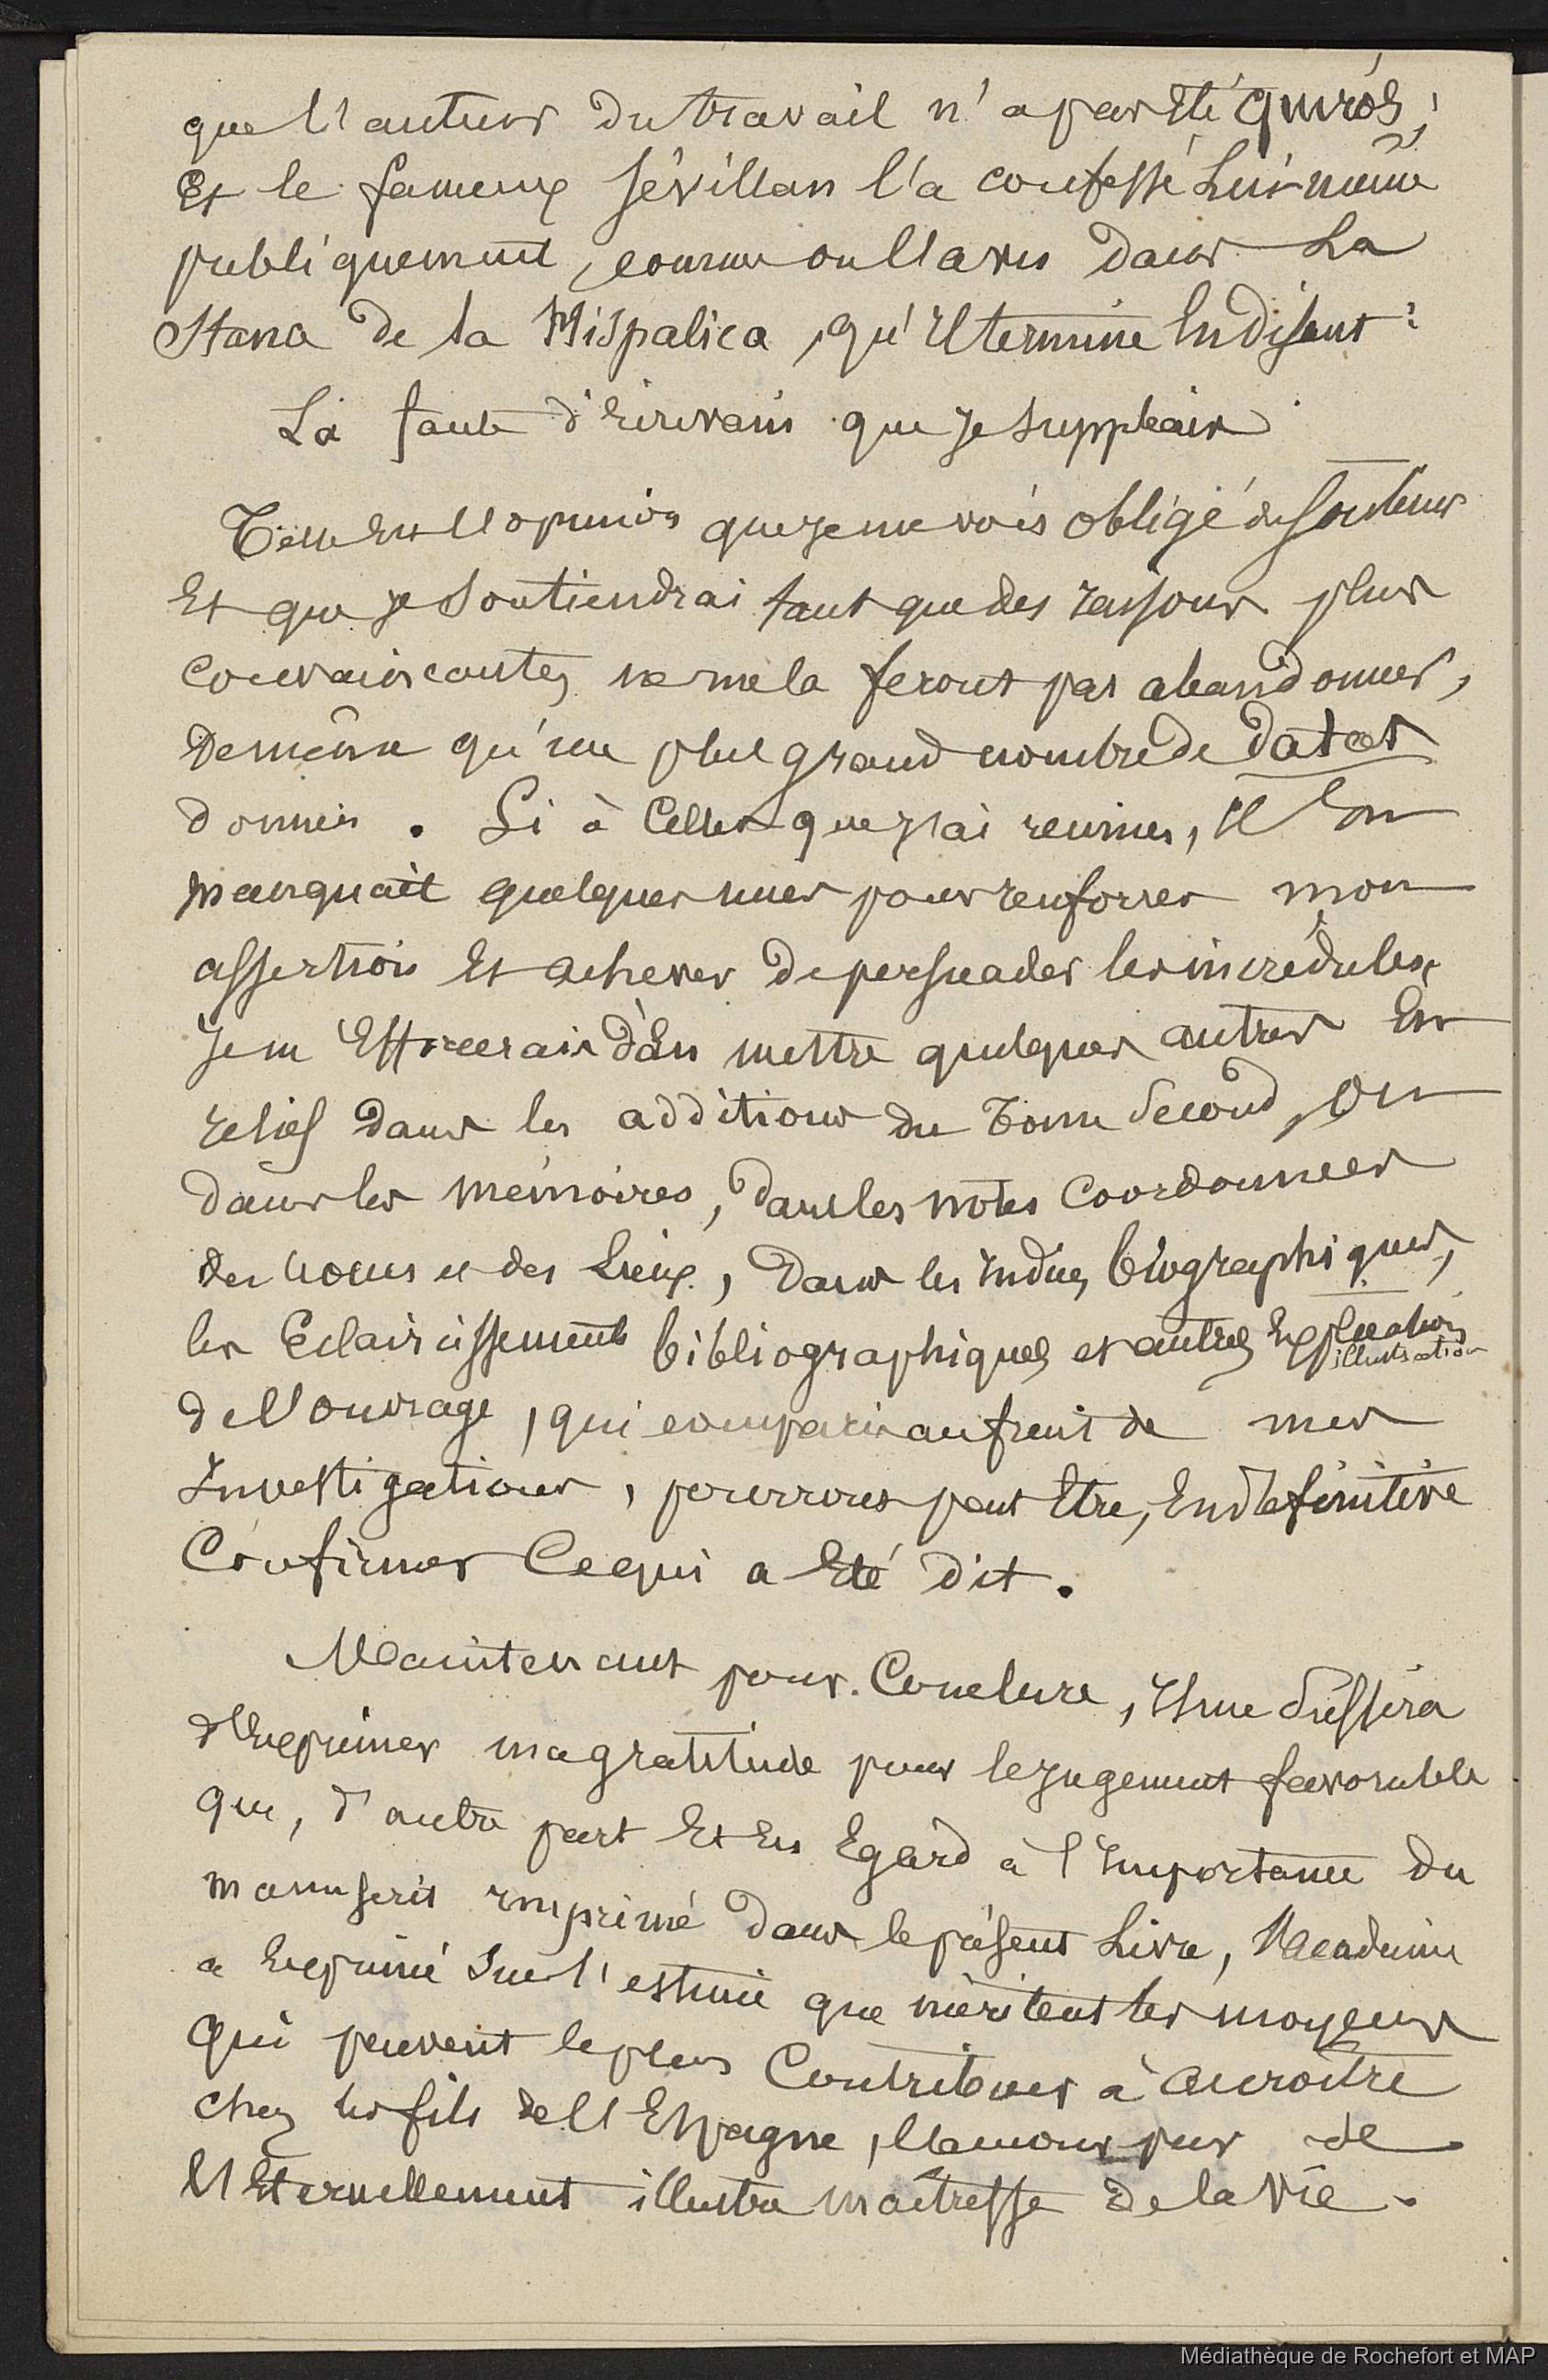 que l'auteur du travail n'a pas été Quirós;
Et le fameux Sévillan l'a confessé Lui-même
publiquement, comme on l'a vu dans La
Stana de la Hispalica, qu'Il termine En disant:
La faute d'Ecrivain que je suppleais
Telle Est l'opinion que je me vois obligé de soutenir
Et que je soutiendrai tant que des raisons plus
convaincantes ne me la feront pas abandonner,
De même qu'un plus grand nombre de dates
données. Si à Celles que j'ai reunies, Il En
manquait quelques unes pour renforcer mon
assertion Et achever de persuader les incrédules,
Je m'Efforcerais d'En mettre quelques autres En
relief dans les additions du Tome Second, Ou
dans les mémoires, dans les notes Coordonnées
des noms et des Lieux, Dans les Indices biographiques,
les Eclaircissements bibliographiques et autres Explications
illustration
de l'ouvrage, qui comparis au fruit de mes
Investigations, pourront peut Etre, En definitive
Confirmer Ce qui a Eté dit.
Maintenant pour Conclure, Il me Suffira
d'Exprimer ma gratitude pour le jugement favorable
que, d'autre part Et En Egard à l'Importance du
manuscrit imprimé dans le présent Livre, l'Academie
a Exprimé Sur l'estime que méritent les moyens
Qui peuvent le plus Contribuer à accroître
chez les fils de l'Espagne, l'amour pur de
l'Eternellement illustre maîtresse de la vie.
Médiathèque de Rochefort et MAP